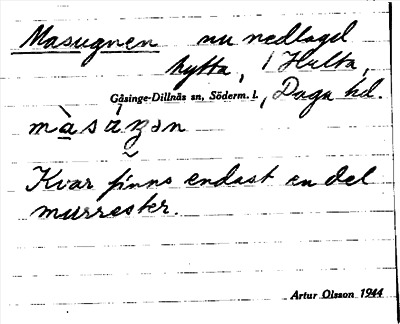 Masugnen nu nedlagd
hytta, i Hulta,
Gåsinge-Dillnäs sn, Söderm. l., Daga hd.
màsáŋən
Kvar finns endast en del
murrester.
Artur Olsson 1944